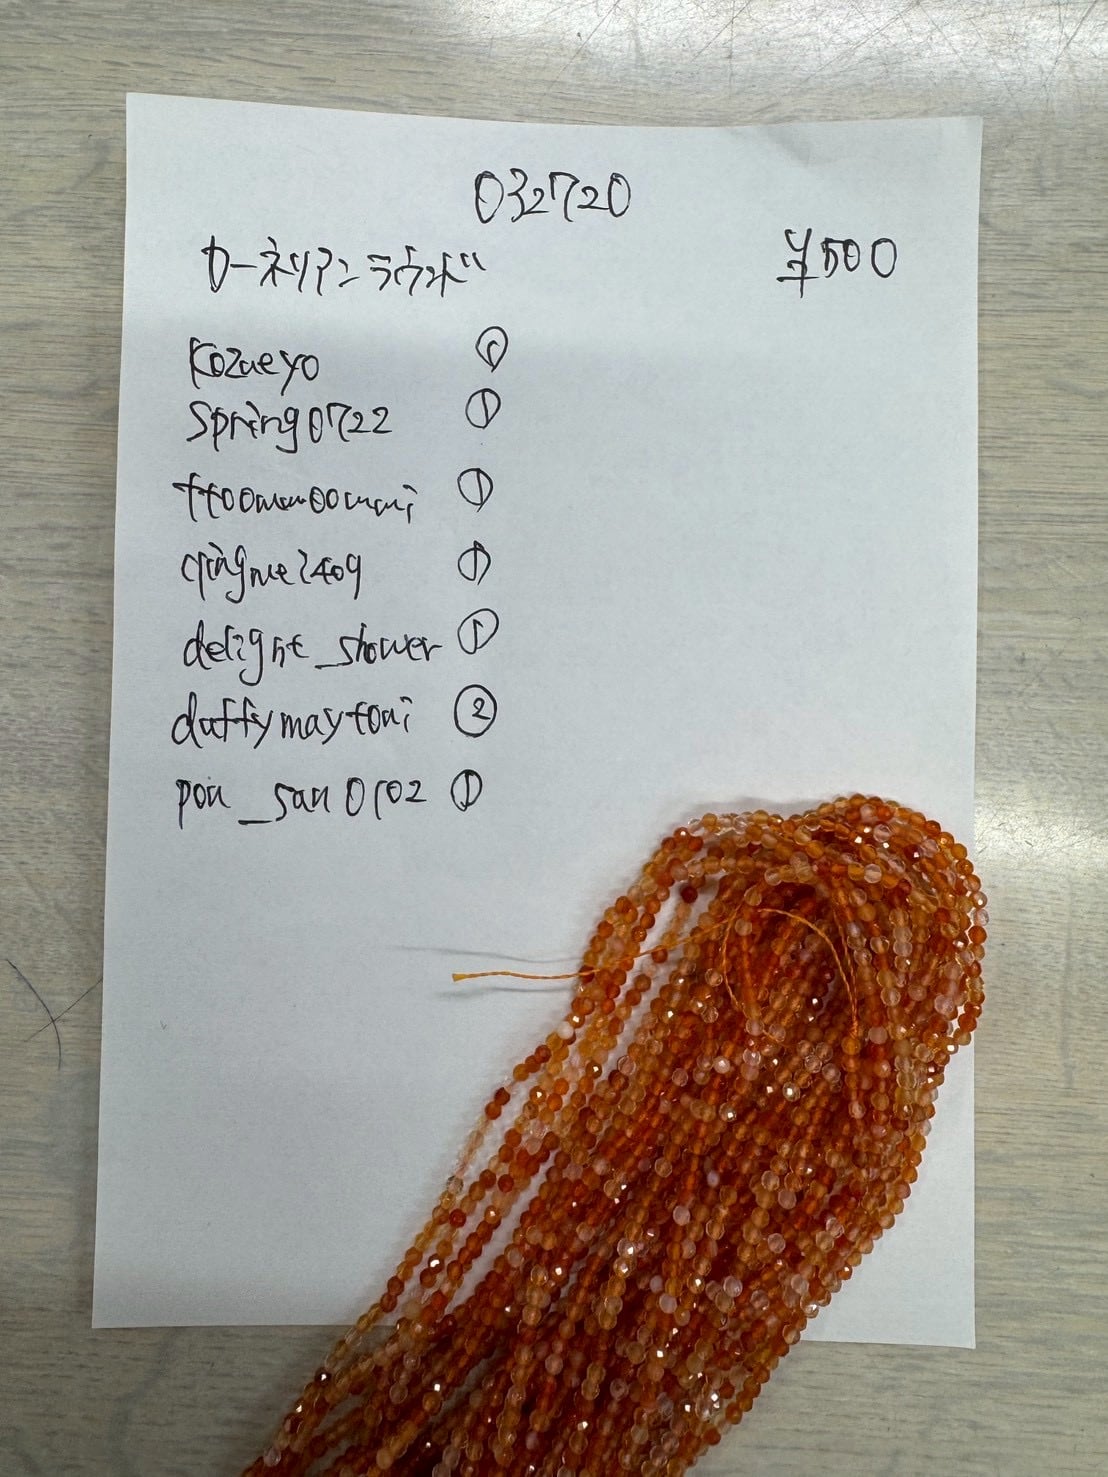 032720
カーネリアンラウンド
¥500
Kozueyo ①
Spring0722 ①
①
qingmei409 ①
delight_shower ①
duffymaytoni ②
pon_san0102 ①